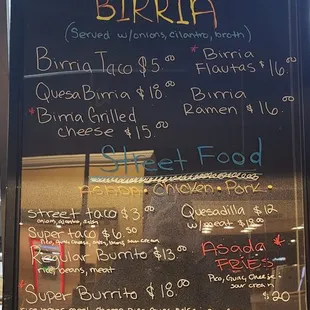 BIRRIA
(Served w/onions, cilantro, broth)
Birria Taco $5.00
QuesaBirria $18.00
*Birria Grilled
cheese $15.00
* Birria
Flautas $16.00
Birria
Ramen $16.00
Street Food
Chicken · Pork
street taco $3.00
onions, cilantro,
Super taco $6.50
Pico, Guac, Cheese, sour cream
Regular Burrito $13.00
rice, beans, meat
*Super Burrito $18.00
Quesadilla $12
w/meat
Asada
FRIES
Pico, Guac, Cheese,
sour cream
$20